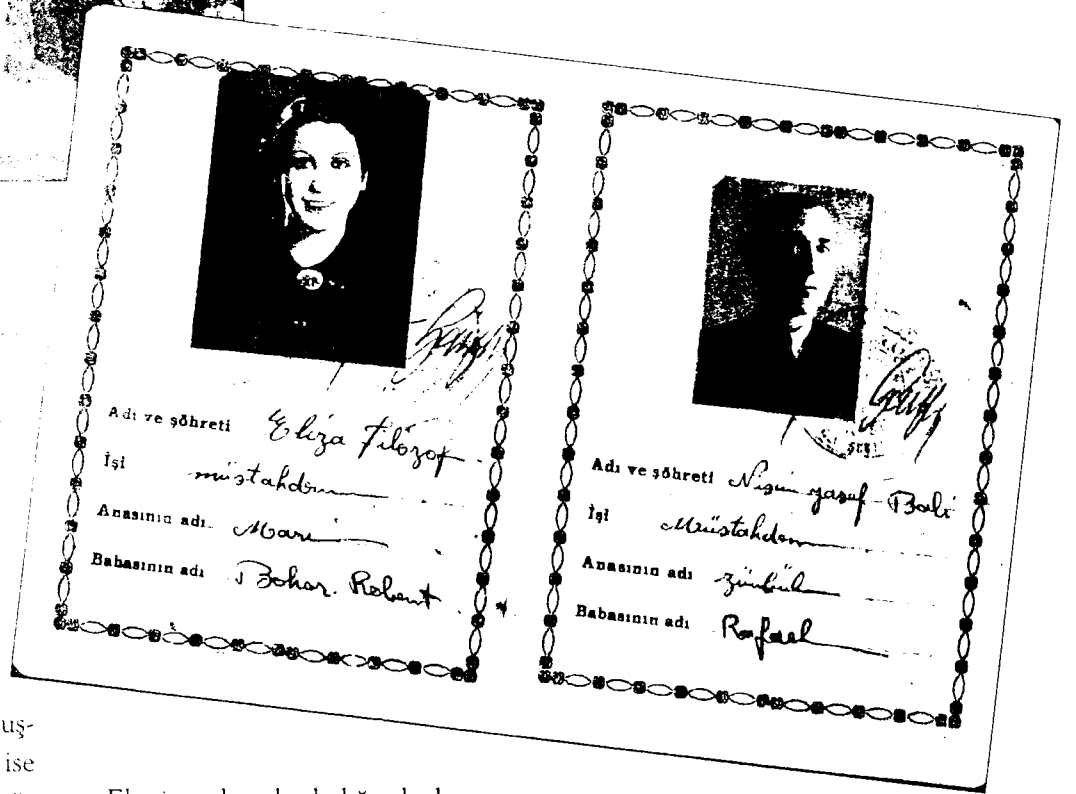 Adı ve şöhreti Eliza Filozof
İşi müstahdem
Anasının adı Mari
Babasının adı Bohor Robent
Adı ve şöhreti Nisim yasef Bali
İşi Müstahdem
Anasının adı zünbül
Babasının adı Rafael
uş-
ise